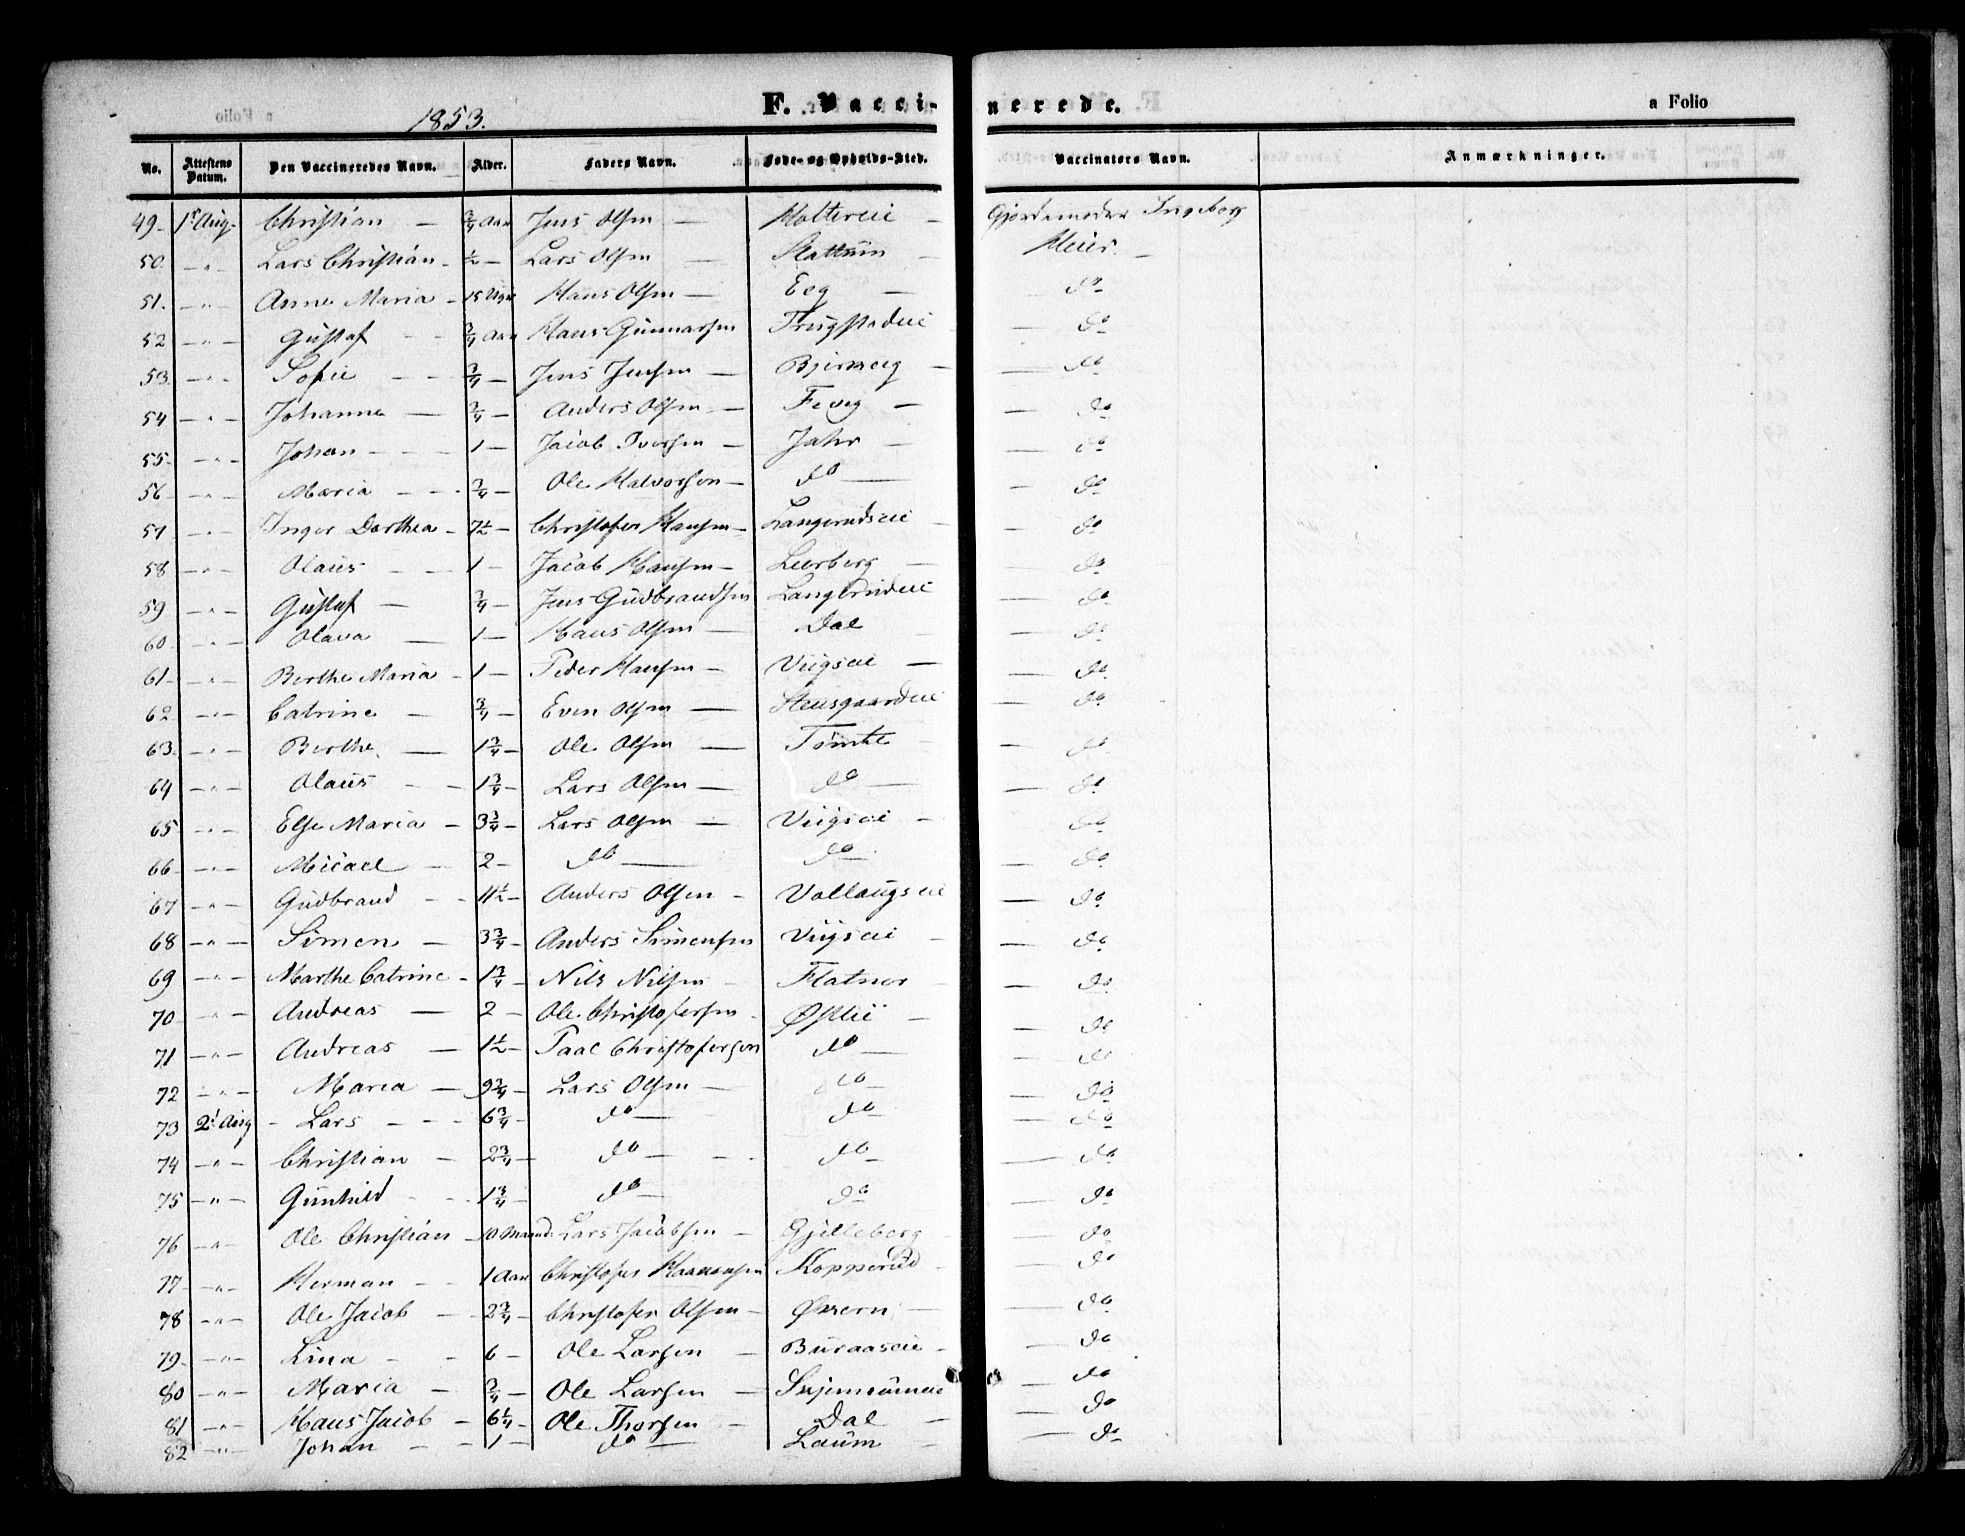 1853.
F. Vaccinerede.
a Folio
No. Attestens Datum. Den Vaccineredes Navn. Alder. Faders Navn. Føde- og Opholds-Sted. Vaccinators Navn. Anmærkninger.
49. 1st Aug. Christian — 3/4 Aar Jens Olsen — Holtereie — Gjordemoder Ingeborg
50. — " — Lars Christian - 1/2 — Lars Olsen — Slattum — Meier. —
51. — " — Anne Maria - 15 Uger Hans Olsen — Eeg — do
52 — " — Gustaf - - 3/4 Aar Hans Gunnarsen Trugstadeie — do
53. — " — Sofie - - 3/4 — Jens Jensen — Bjerkeeg — — do
54 — " — Johanne — 3/4 — Anders Olsen — — do
55. — " — Johan - - - 1 — Jacob Iversen — Jahr — — do
56 — " — Maria - - - 3/4 — Ole Halvorsen — do — — do
57 — " — Inger Dorthea - 7 1/2 — Christofer Hansen — Langerudseie — do
58 — " — Olaus - - 1 — Jacob Hansen — Leerberg — do
59 — " — Gustaf — 3/4 — Jens Gudbrandsen Langerudeie — do
60 — " — Olava — 1 — Hans Olsen — Dal — do
61 — " — Berthe Maria - 1 — Peder Hansen — Viigseie — — do
62 — " — Catrine — 3/4 — Even Olsen — Steensgaardeie — do
63. — " — Berthe — 1 3/4 — Ole Olsen — Tømte — do
64 — " — Olaus - - 1 3/4 — Lars Olsen — do — — do
65 — " — Else Maria - 3 3/4 — Lars Olsen — Viigseie - — do
66 — " — Micael - 2 — do — do — — do
67 — " — Gudbrand - - 11 1/2 — Anders Olsen - Vollaugseie — do
68 — " — Simen — 3 3/4 — Anders Simensen Viigseie - — do
69 — " — Marthe Catrine - 1 3/4 — Nils Nilsen - Flatner - — do
70 — " — Andreas — 2 — Ole Christofersen - Østlie — — do
71 — " — Andreas — 1 1/2 — Paal Christofersen do — — do
72 — " — Maria — 9 3/4 — Lars Olsen — do — — do
73 2d Aug - Lars - - - 6 3/4 — do — do — — do
74 — " — Christian — 2 3/4 — do — do — — do
75 — " — Gunhild - - 1 3/4 — do — do — do
76 — " — Ole Christian - 10 Maaned. Lars Jacobsen — Gjelleberg — do
77 — " — Herman - - 1 Aar Christofer Haavensen Kopperud — do
78 — " — Ole Jacob - - 2 3/4 — Christofer Olsen — Økern — — do
79. — " — Lina - - 6 — Ole Larsen — Buraaseie - — do
80 — " — Maria — 3/4 — Ole Larsen — — do
81 — " — Hans Jacob - 6 1/4 — Ole Thorsen — Dal — — do
82 — " — Johan - - 1 — do — Laum — — do